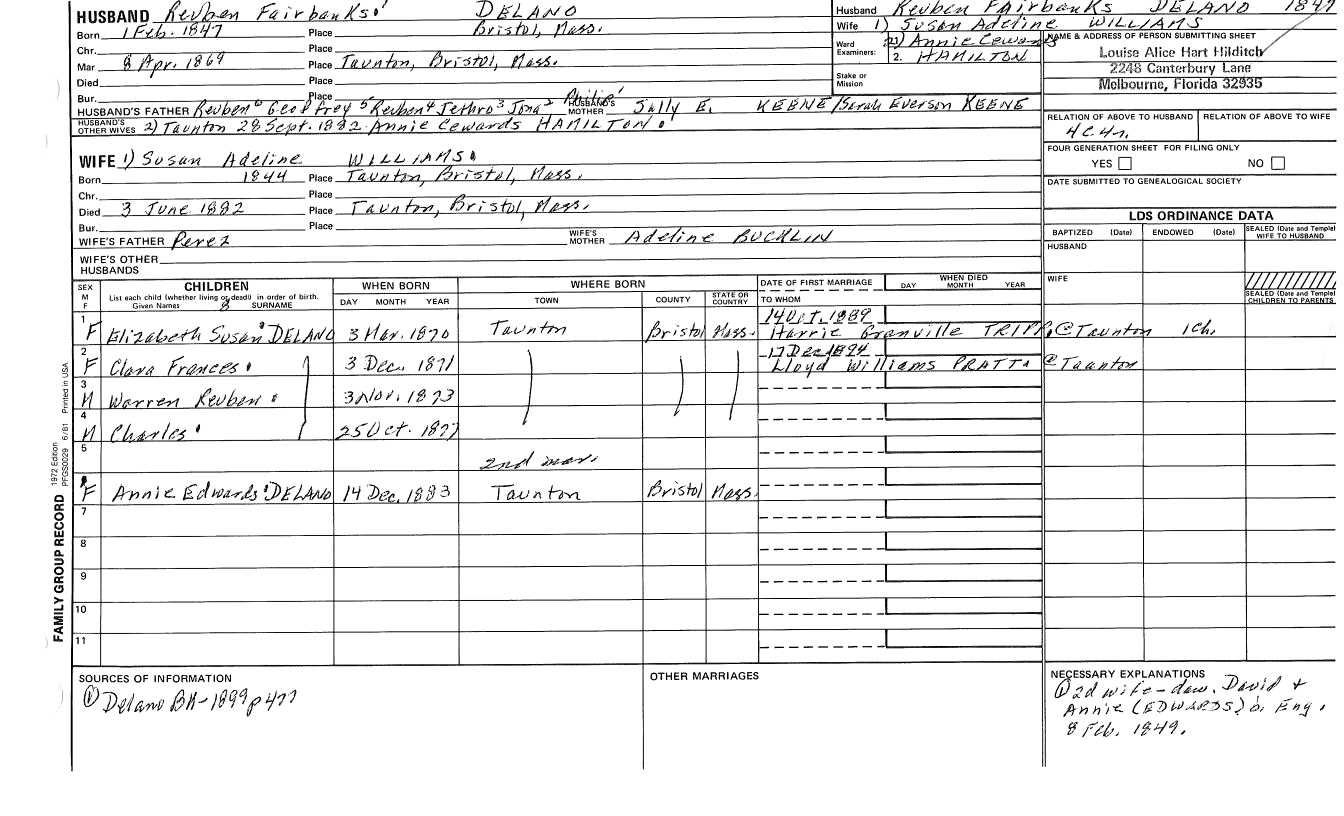 HUSBAND Reuben Fairbanks DELANO
Born 1 Feb. 1847 Place Bristol, Mass.
Chr. Place
Mar 8 Apr. 1869 Place Taunton, Bristol, Mass.
Died Place
Bur. Place
HUSBAND'S FATHER Reuben 6 Geoffrey 5 Reuben 4 Jethro 3 Jona 2 Philip 1 HUSBAND'S MOTHER Sally E. KEENE/Sarah Everson KEENE
HUSBAND'S OTHER WIVES 2) Taunton 28 Sept. 1882 Annie Cewards HAMILTON
Husband Reuben Fairbanks DELANO 1847
Wife 1) Susan Adeline WILLIAMS
Ward Examiners: 2) Annie Cewards
2. HAMILTON
Stake or Mission
NAME & ADDRESS OF PERSON SUBMITTING SHEET
Louise Alice Hart Hilditch
2248 Canterbury Lane
Melbourne, Florida 32935
RELATION OF ABOVE TO HUSBAND RELATION OF ABOVE TO WIFE
4C4r.
FOUR GENERATION SHEET FOR FILING ONLY
YES NO
DATE SUBMITTED TO GENEALOGICAL SOCIETY
WIFE 1) Susan Adeline WILLIAMS
Born 1844 Place Taunton, Bristol, Mass.
Chr. Place
Died 3 June 1882 Place Taunton, Bristol, Mass.
Bur. Place
WIFE'S FATHER Perez WIFE'S MOTHER Adeline BUCKLIN
WIFE'S OTHER HUSBANDS
LDS ORDINANCE DATA
BAPTIZED (Date) ENDOWED (Date) SEALED (Date and Temple) WIFE TO HUSBAND
HUSBAND
WIFE
SEALED (Date and Temple) CHILDREN TO PARENTS
SEX M F
CHILDREN
List each child (whether living or dead) in order of birth.
Given Names 8 SURNAME
WHEN BORN
DAY MONTH YEAR
WHERE BORN
TOWN COUNTY STATE OR COUNTRY
DATE OF FIRST MARRIAGE
TO WHOM
WHEN DIED
DAY MONTH YEAR
1 F Elizabeth Susan DELANO 3 Mar. 1870 Taunton Bristol Mass. 14 Oct. 1889
Harrie Granville TRIPP @ Taunton 1 ch.
2 F Clara Frances 3 Dec. 1871 17 Dec 1894
Lloyd Williams PRATT @ Taunton
3 M Warren Reuben 3 Nov. 1873
4 M Charles 25 Oct. 1877
5 2nd mar.
F Annie Edwards DELANO 14 Dec. 1883 Taunton Bristol Mass.
7
8
9
10
11
FAMILY GROUP RECORD 1972 Edition PFGS0029 6/81 Printed in USA
SOURCES OF INFORMATION
① Delano BK-1899 p477
OTHER MARRIAGES
NECESSARY EXPLANATIONS
① 2d wife - daw. David +
Annie (EDWARDS) b. Eng.
8 Feb. 1849.